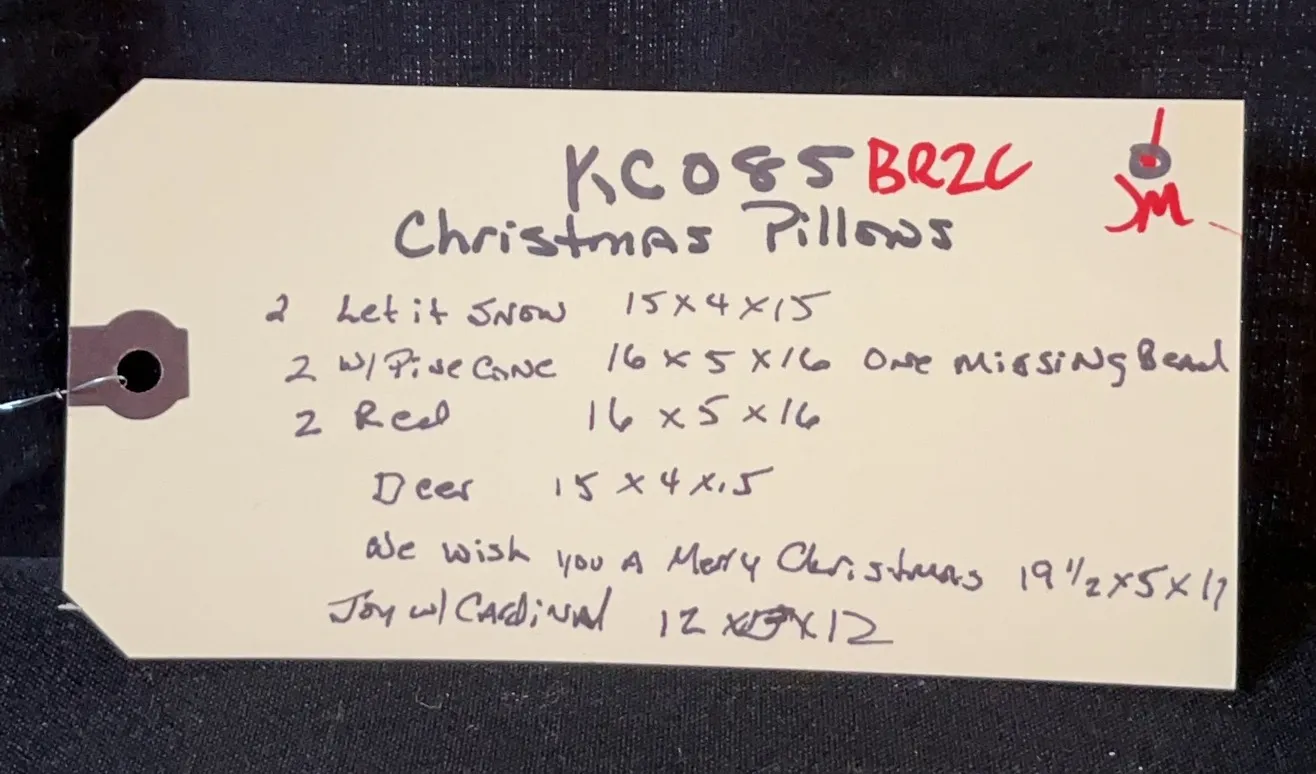 KC085 BR2C JM
Christmas Pillows
2 Let it Snow 15 x 4 x 15
2 W/ Pine Cone 16 x 5 x 16 One Missing Bead
2 Red 16 x 5 x 16
Deer 15 x 4 x 15
We wish you A Merry Christmas 19 1/2 x 5 x 11
Joy w/ Cardinal 12 x x 12